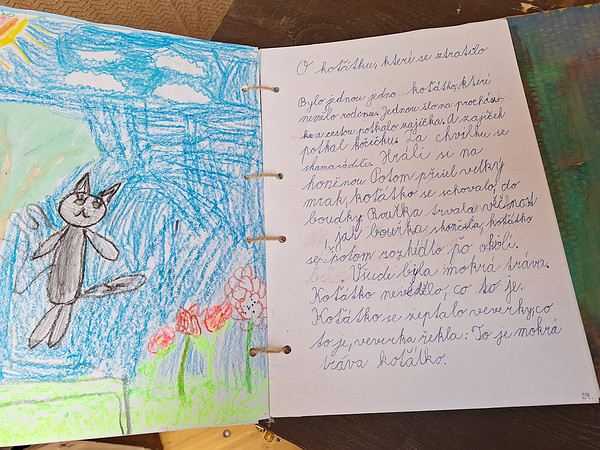 O koťátku, které se ztratilo
Bylo jednou jedno koťátko, které
nemělo rodinu. Jednou šlo na procház-
ku a cestou potkalo zajíčka. A zajíček
potkal kočičku. Za chvilku se
skamarádili. Hráli si na
honěnou. Potom přišel velký
mrak, koťátko se schovalo do
boudky. Bouřka trvala věčnost
, jak bouřka skončila, koťátko
se potom rozhlédlo po okolí.
Všude byla mokrá tráva.
Koťátko nevědělo, co to je.
Koťátko se zeptalo veverky, co
to je, veverka řekla: To je mokrá
tráva koťátko.
29.